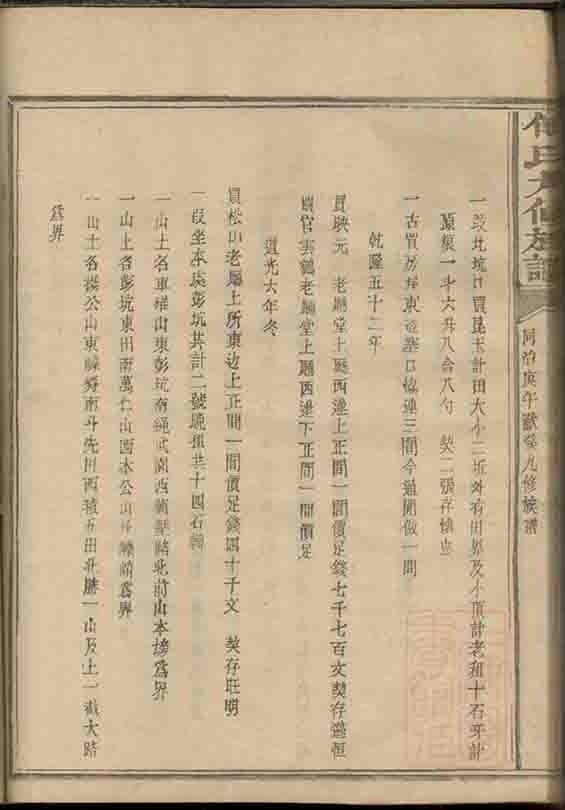 氏九修族譜
同治庚午歲癸九修族譜
一段坑口買昆玉計田大小二坵外有田界及小頂計老租十石牙計
原糧一斗六升八合八勺 契二張存慎
一古買房東邊 口 連三間今過閒做一間
乾隆五十二年
買映元 老廳堂上廳西邊上正間一間價足錢七千七百文契存遜恒
買官雲鶴老廳堂上廳西邊下正間一間價足
道光六年冬
買松山老廳上所東边上正間一間價足錢四十千文 契存旺明
一段坐本處彭坑共計二號 租共十四石
一山土名車 山東彭坑南繩武園西 路北前山本 為界
一山土名彭坑東田南萬仁山西本公山北 為界
一山土名 公山東 南斗先田西積五田北勝一山及上一截大路
為界